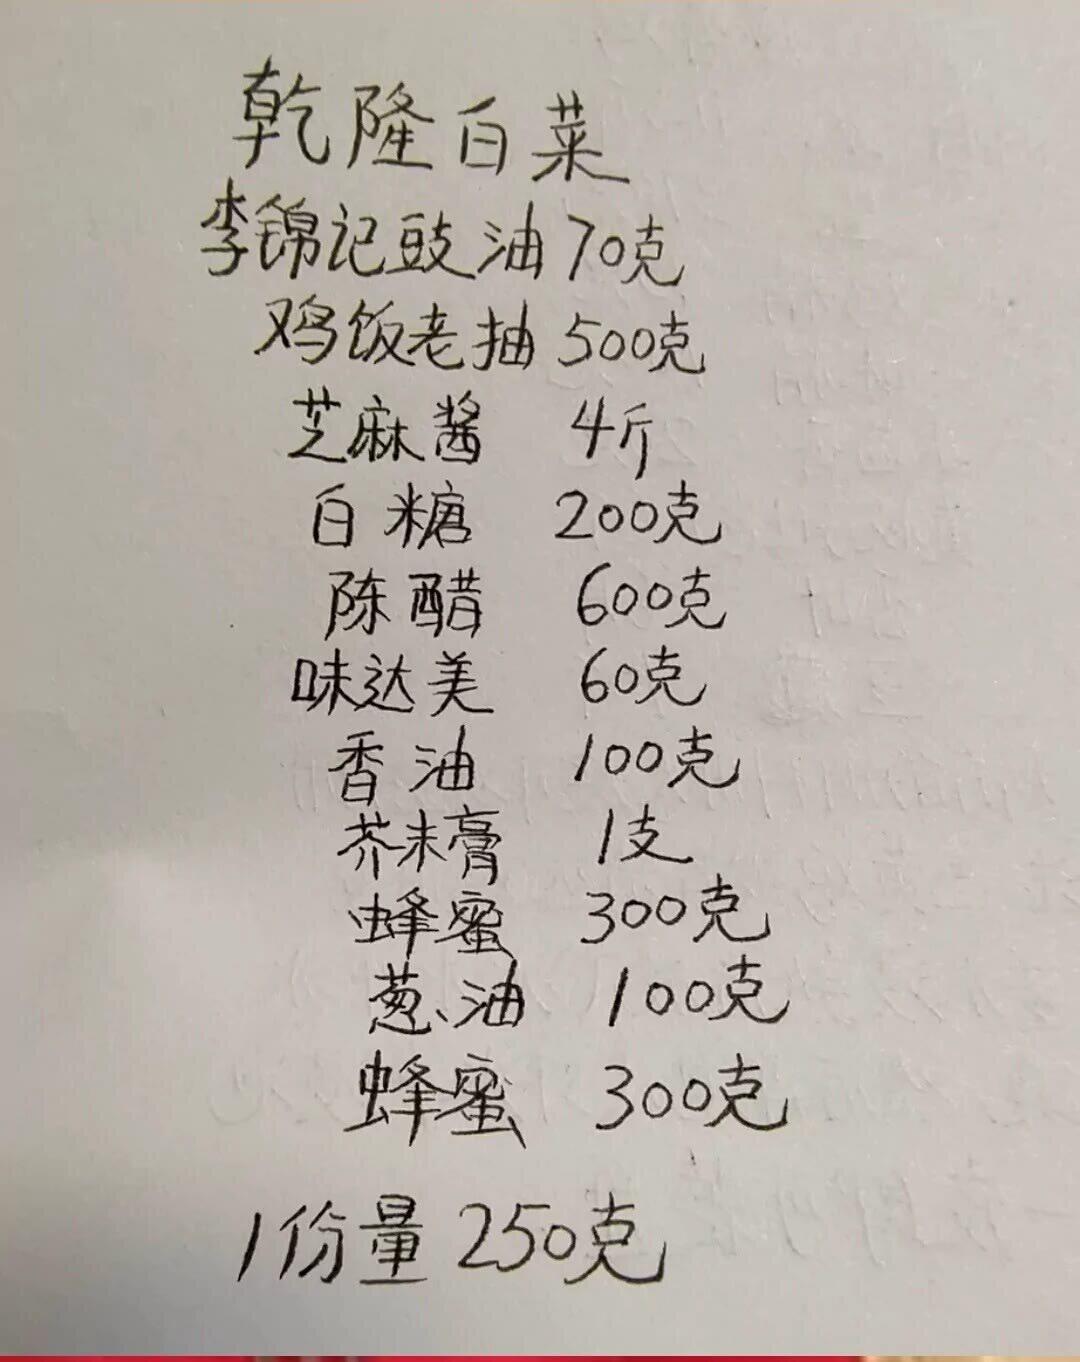 乾隆白菜
李锦记豉油 70克
鸡饭老抽 500克
芝麻酱 4斤
白糖 200克
陈醋 600克
味达美 60克
香油 100克
芥末膏 1支
蜂蜜 300克
葱油 100克
蜂蜜 300克
1份量 250克